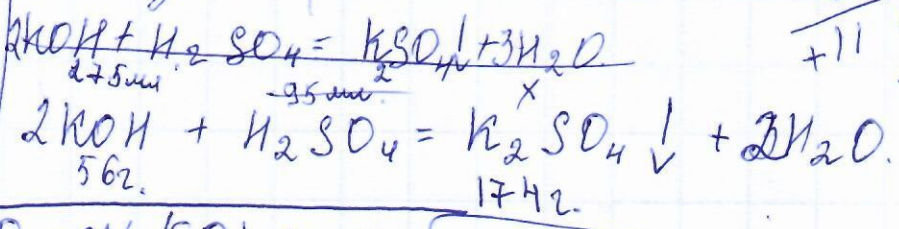 2KOH + H₂SO₄ = K₂SO₄↓ + 3H₂O
+11
275мл 95мл x
2KOH + H₂SO₄ = K₂SO₄↓ + 2H₂O.
56г. 174г.